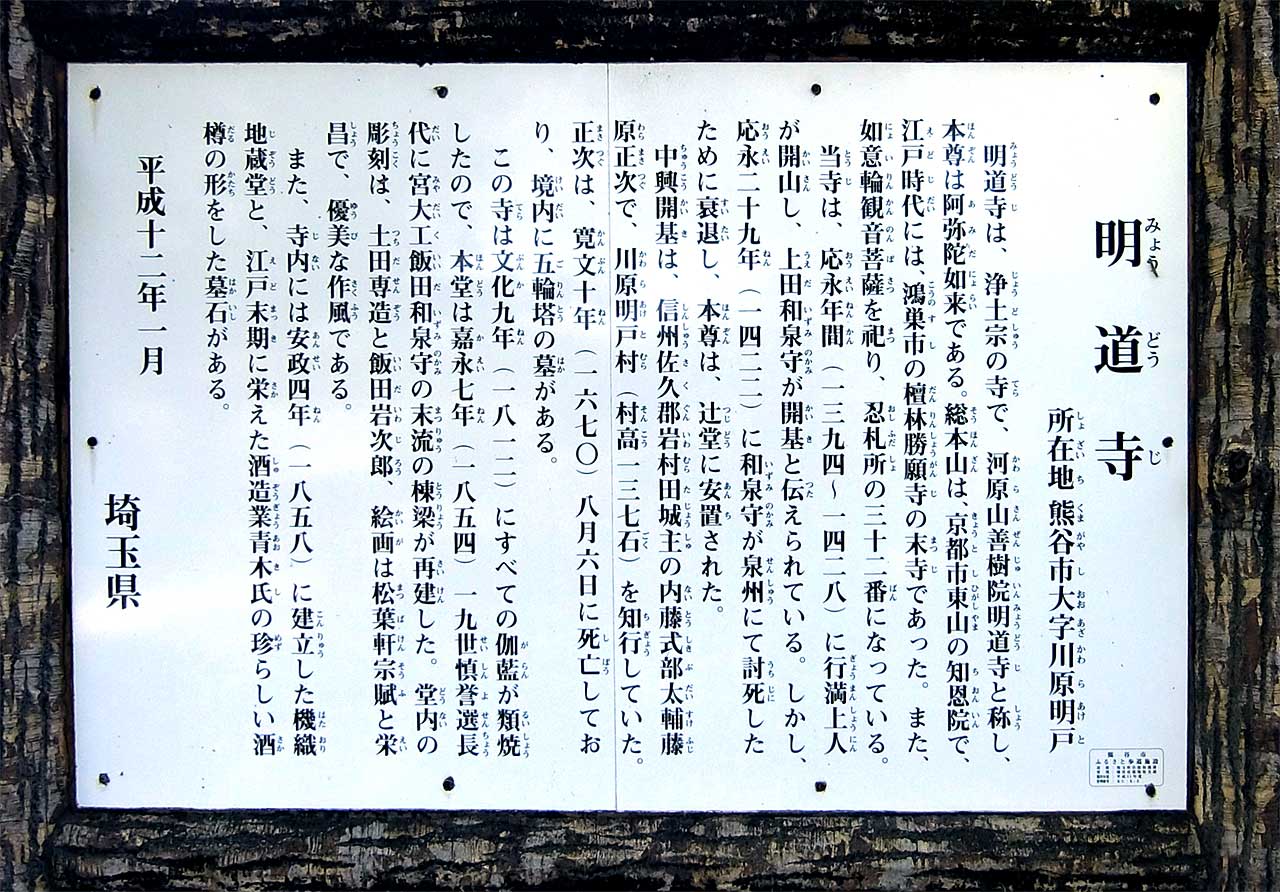 明道寺
所在地 熊谷市大字川原明戸
明道寺は、浄土宗の寺で、河原山善樹院明道寺と称し、
本尊は阿弥陀如来である。総本山は、京都市東山の知恩院で、
江戸時代には、鴻巣市の檀林勝願寺の末寺であった。また、
如意輪観音菩薩を祀り、忍札所の三十二番になっている。
当寺は、応永年間（一三九四～一四二八）に行満上人
が開山し、上田和泉守が開基と伝えられている。しかし、
応永二十九年（一四二二）に和泉守が泉州にて討死した
ために衰退し、本尊は、辻堂に安置された。
中興開基は、信州佐久郡岩村田城主の内藤式部太輔藤
原正次で、川原明戸村（村高一三七石）を知行していた。
正次は、寛文十年（一六七〇）八月六日に死亡してお
り、境内に五輪塔の墓がある。
この寺は文化九年（一八一二）にすべての伽藍が類焼
したので、本堂は嘉永七年（一八五四）一九世慎誉選長
代に宮大工飯田和泉守の末流の棟梁が再建した。堂内の
彫刻は、土田専造と飯田岩次郎、絵画は松葉軒宗賦と栄
昌で、優美な作風である。
また、寺内には安政四年（一八五八）に建立した機織
地蔵堂と、江戸末期に栄えた酒造業青木氏の珍らしい酒
樽の形をした墓石がある。
平成十二年一月
埼玉県
熊谷市
ふるさと歩道施設